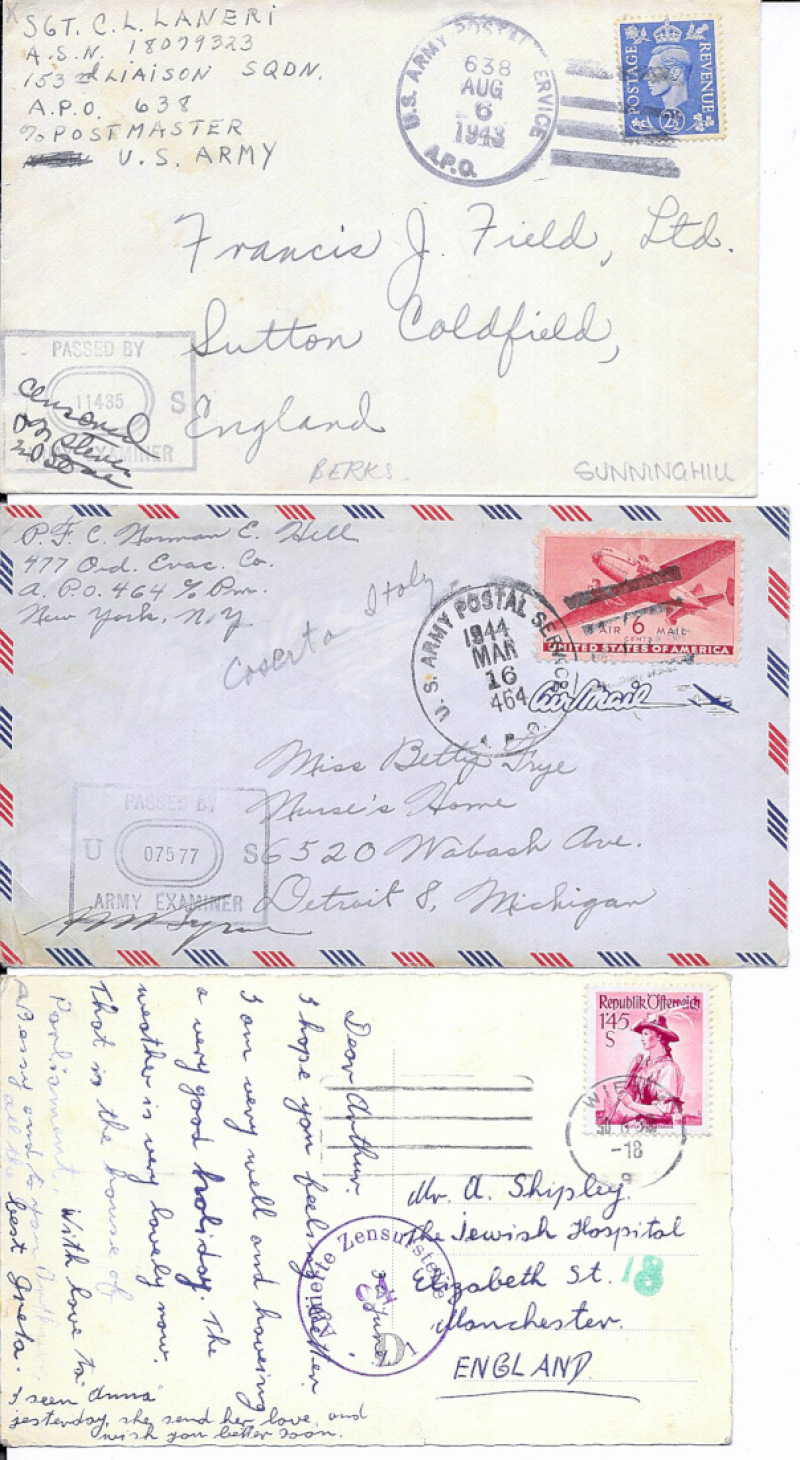 SGT. C. L. LANERI
A.S.N. 18079323
153rd LIAISON SQDN.
A.P.O. 638
℅ POSTMASTER
U.S. ARMY
U.S. ARMY POSTAL SERVICE
638
AUG
6
1943
A.P.O.
POSTAGE
REVENUE
2½
Francis J. Field, Ltd.
Sutton Coldfield,
England
PASSED BY
11435 S
ARMY EXAMINER
Censored
BERKS.
SUNNINGHILL
P.F.C. Norman E. Hill
477 Ord. Evac. Co.
A.P.O. 464 ℅ Pm.
New York, N.Y.
Caserta Italy
U.S. ARMY POSTAL SERVICE
1944
MAR
16
464
AIR 6 MAIL
CENTS
UNITED STATES OF AMERICA
Air Mail
Miss Betty Frye
Nurse's Home
6520 Wabash Ave.
Detroit 8, Michigan
PASSED BY
U 07577 S
ARMY EXAMINER
Republik Österreich
1'45
S
WIEN
-18
Dear Arthur.
I hope you feeling better.
I am very well and haveing
a very good holiday. The
weather is very lovely now.
That is the house of
Parliament. With love to
Bessy and to you Arthur.
all the best Greta.
I seen Anna
yesterday, she send her love, and
wish you better soon.
June
Alliierte Zensurstelle
Mr. A. Shipley.
The Jewish Hospital
Elizabeth St.
Manchester.
ENGLAND
18